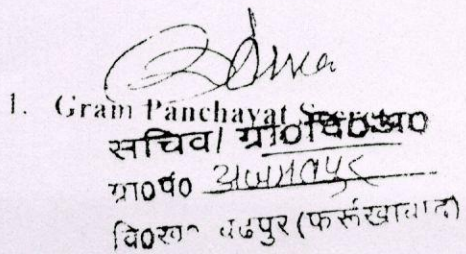 1. Gram Panchayat
सचिव/ ग्रा०वि०अ०
ग्रा०पं०
वि०ख० बढपुर (फर्रूखाबाद)